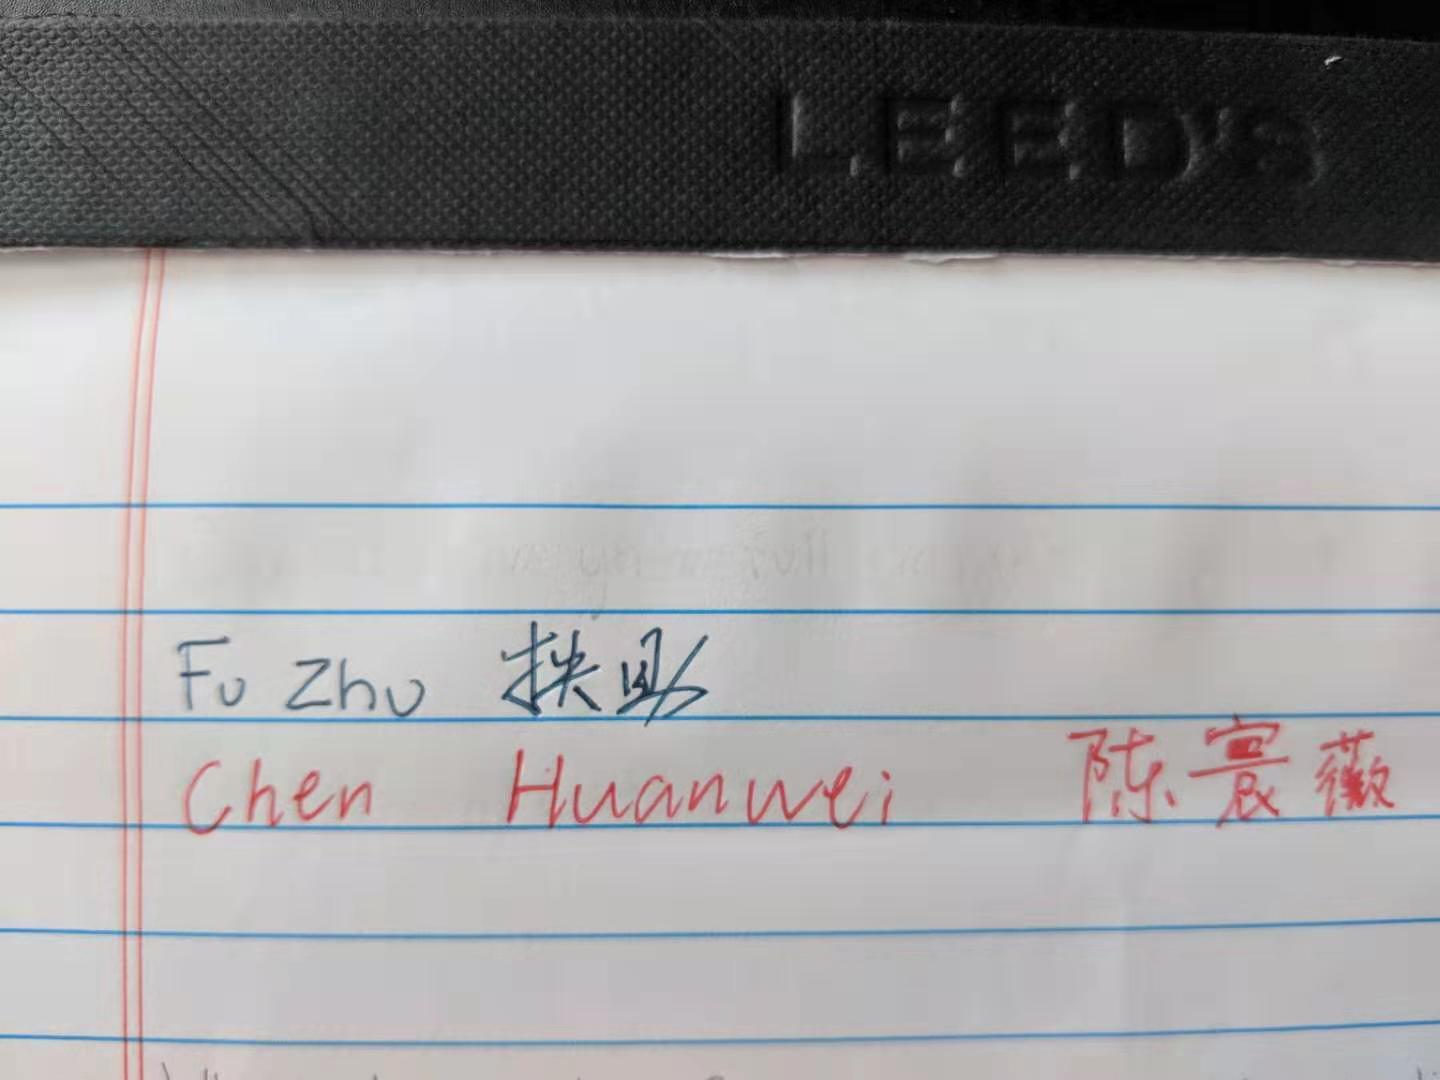 LEED'S
Fu Zhu 扶助
Chen Huanwei 陈寰薇